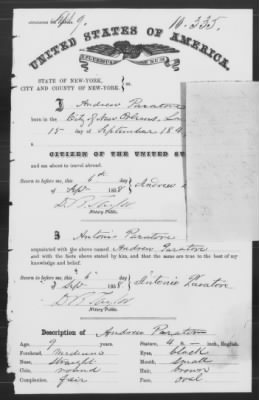 10.335
UNITED STATES OF AMERICA.
E PLURIBUS UNUM
STATE OF NEW-YORK,
CITY AND COUNTY OF NEW-YORK. } ss.
I Andrew
born in the City of New Orleans,
15 day of September 184
CITIZEN OF THE UNITED ST
and am about to travel abroad.
Sworn to before me, this 6th day
of Sept 1858 } Andrew
Notary Public.
I Antonio
acquainted with the above named Andrew
and with the facts above stated by him, and that the same are true to the best of my
knowledge and belief.
Sworn to before me, this 6 day
of Sept 1858 } Antonio
Notary Public.
Description of Andrew
Age, 9 years. Stature, 4 – inch, English.
Forehead, medium Eyes, black
Nose, straight Mouth, small
Chin, round Hair, brown
Complexion, fair Face, oval